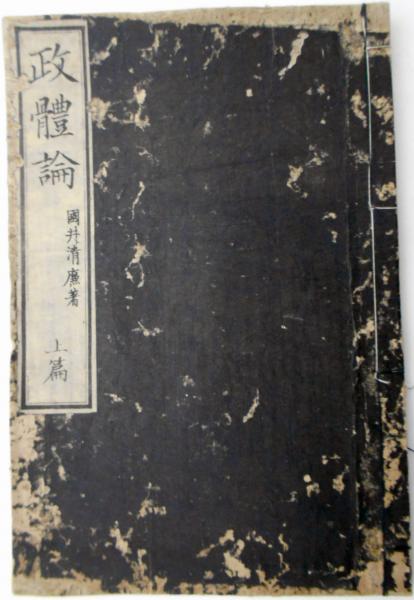 政體論
國井清廉著
上篇